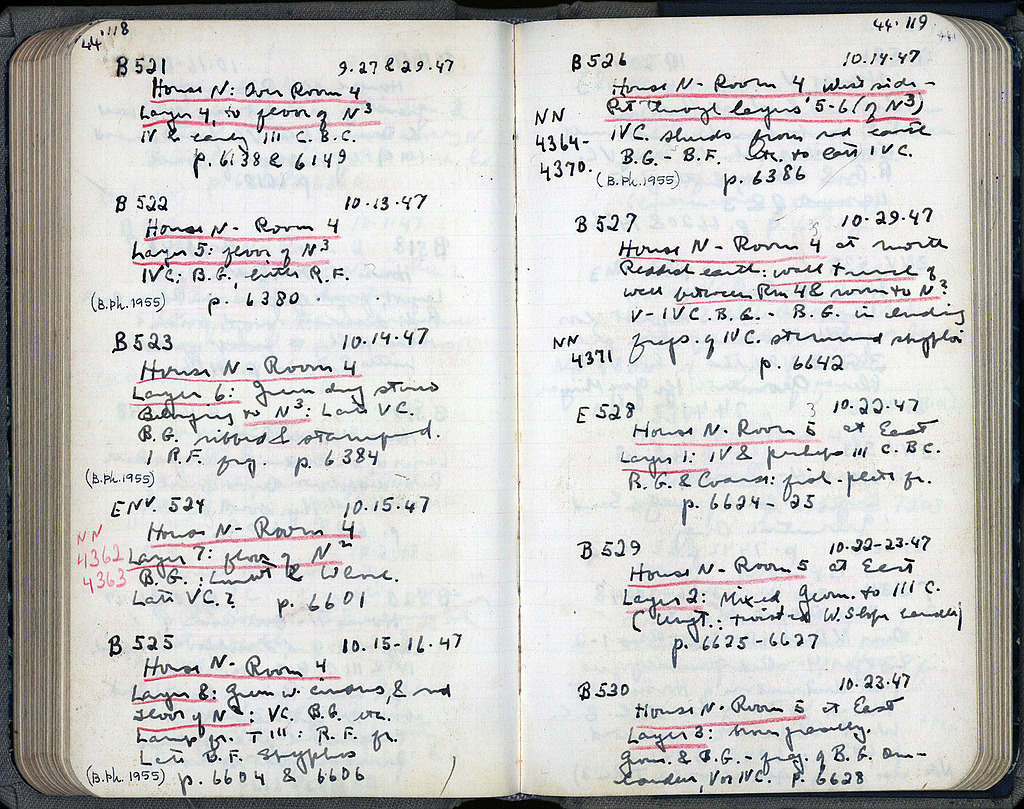 44·118
B 521 9.27 & 29.47
House N: Over Room 4
Layer 4, to floor of N³
IV & early III C. B.C.
p. 6138 & 6149
B 522 10.13.47
House N - Room 4
Layer 5: floor of N³
IVC; B.G., little R.F.
(B.Ph. 1955) p. 6380
B 523 10.14.47
House N - Room 4
Layer 6: Green dug stones
Belonging to N³: Late VC.
B.G. ribbed & stamped.
1 R.F. frg. p. 6384
(B.Ph. 1955)
ENV. 524 10.15.47
House N - Room 4
NN
4362
4363
Layer 7: floor of N²
B.G.: &
Late VC.? p. 6601
B 525 10.15-16.47
House N - Room 4
Layer 8: Green w. & red
floor of N²: VC. B.G. etc.
Lamp fr. T III: R.F. fr.
Late B.F. Skyphos
(B.Ph. 1955) p. 6604 & 6606
44·119
B 526 10.14.47
House N - Room 4 West side -
Pit through layers 5-6 (of N³)
NN
4364-
4370.
IVC. sherds from red earth
B.G. - B.F. etc. to late IVC.
(B.Ph. 1955) p. 6386
B 527 10.29.47
House N - Room 4 at north
Reddish earth: wall trench of
wall between Rm 4 & room to N?
V-IVC. B.G. - B.G. including
NN
4371
frags. of IVC. stemmed skyphoi
p. 6642
E 528 10.22.47
House N. Room 5 at East
Layer 1: IV & perhaps III C. B.C.
B.G. & Coarse: fish-plate fr.
p. 6624-25
B 529 10.22-23.47
House N - Room 5 at East
Layer 2: Mixed Geom. to III C.
(: twisted W. Slope handle)
p. 6625-6627
B 530 10.23.47
House N - Room 5 at East
Layer 3:
Geom. & B.G. - frg. of B.G.
V or IVC. p. 6628